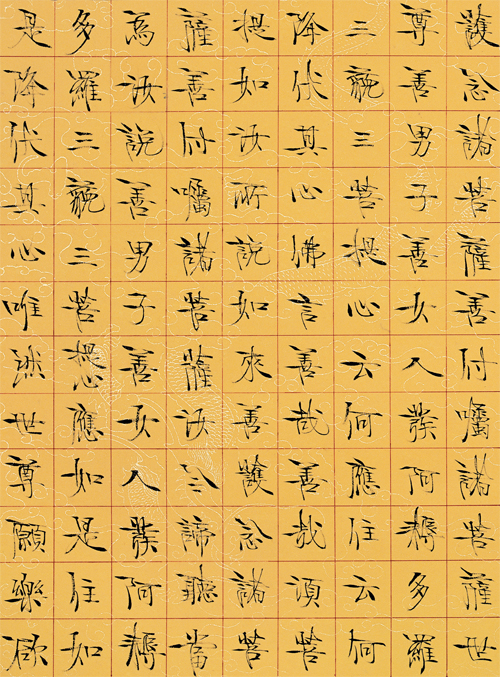 護念諸菩薩善付囑諸菩薩世
尊善男子善女人發阿耨多羅
三藐三菩提心云何應住云何
降伏其心佛言善哉善哉須菩
提如汝所說如來善護念諸菩
薩善付囑諸菩薩汝今諦聽當
為汝說善男子善女人發阿耨
多羅三藐三菩提心應如是住如
是降伏其心唯然世尊願樂欲